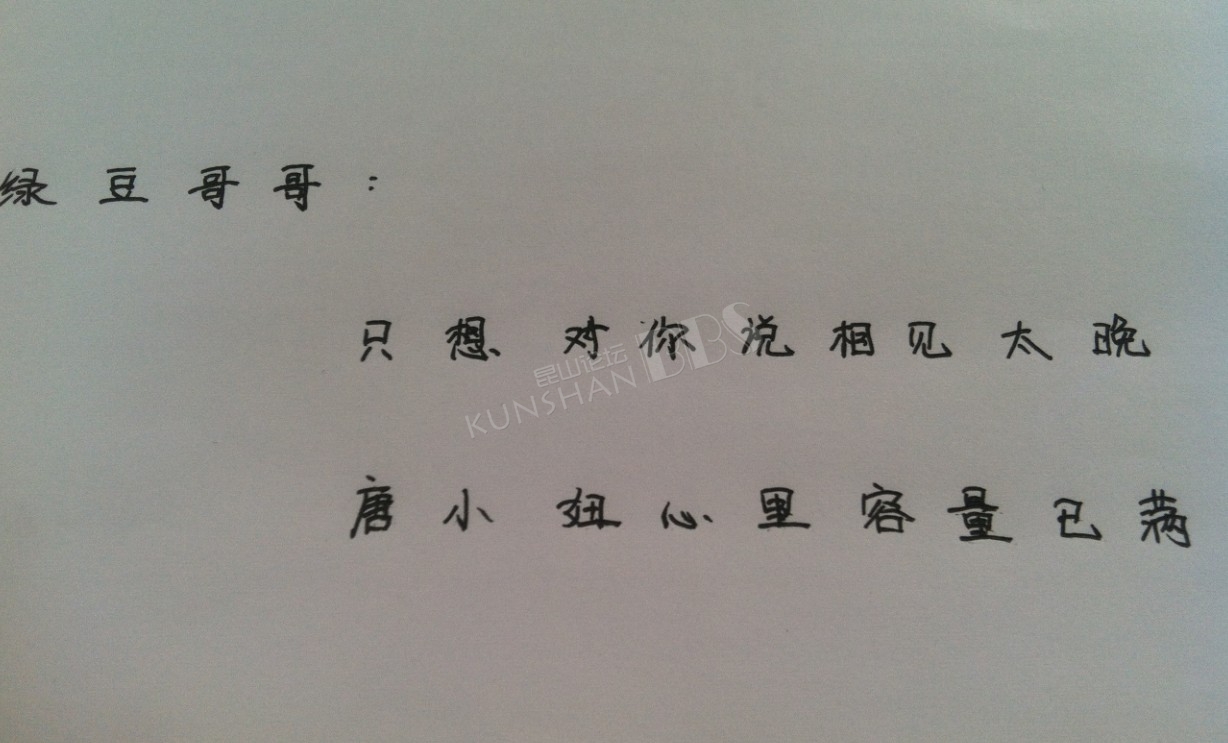 绿豆哥哥:
只想对你说相见太晚
昆山论坛
KUNSHAN BBS
唐小妞心里容量已满